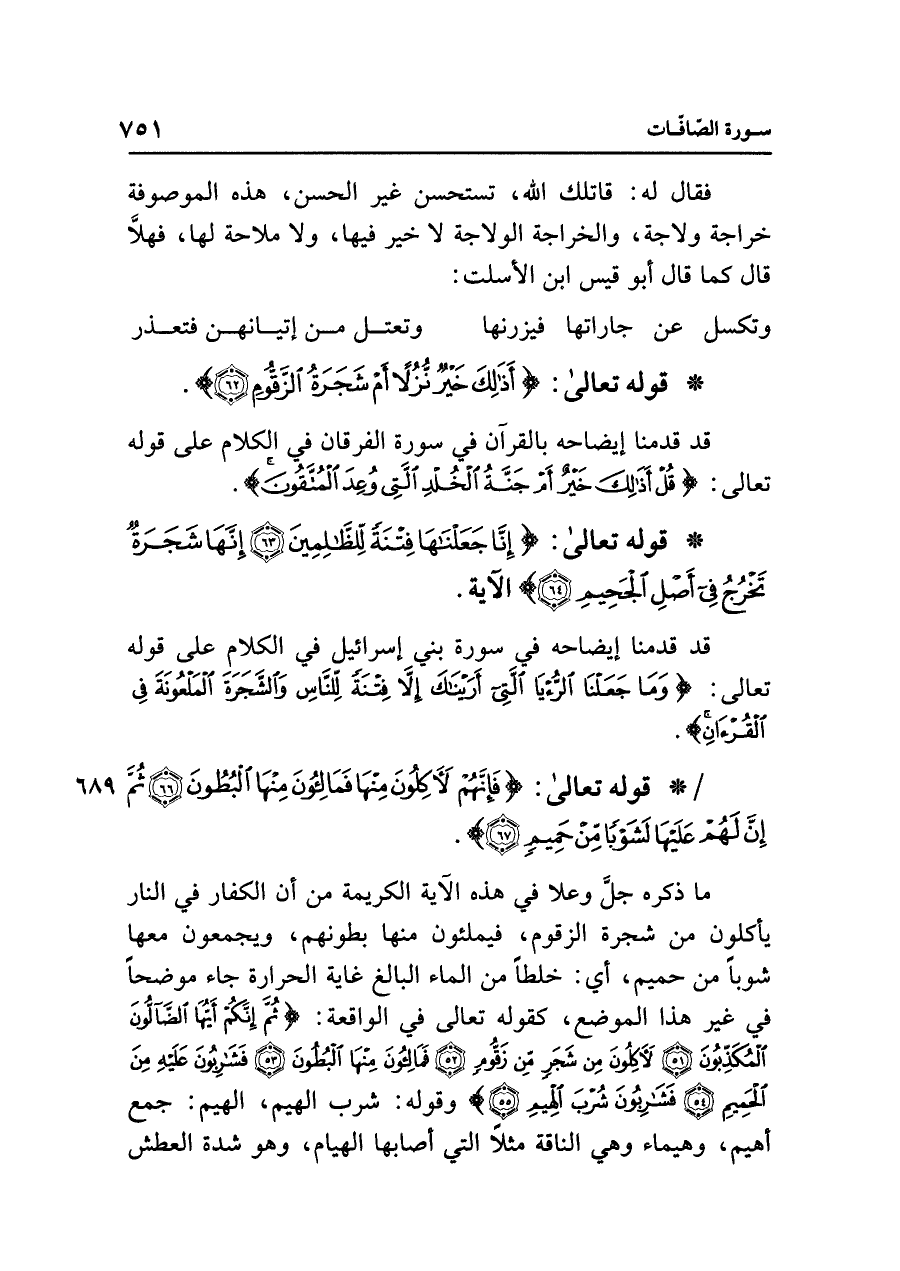 سورة الصّافّات ٧٥١
فقال له: قاتلك الله، تستحسن غير الحسن، هذه الموصوفة
خراجة ولاجة، والخراجة الولاجة لا خير فيها، ولا ملاحة لها، فهلاَّ
قال كما قال أبو قيس ابن الأسلت:
وتكسل عن جاراتها فيزرنها وتعتل من إتيانهن فتعذر
* قوله تعالىٰ: ﴿أَذَٰلِكَ خَيْرٌ نُّزُلًا أَمْ شَجَرَةُ ٱلزَّقُّومِ ٦٢﴾.
قد قدمنا إيضاحه بالقرآن في سورة الفرقان في الكلام على قوله
تعالى: ﴿قُلْ أَذَٰلِكَ خَيْرٌ أَمْ جَنَّةُ ٱلْخُلْدِ ٱلَّتِى وُعِدَ ٱلْمُتَّقُونَۚ﴾.
* قوله تعالىٰ: ﴿إِنَّا جَعَلْنَٰهَا فِتْنَةً لِّلظَّٰلِمِينَ ٦٣ إِنَّهَا شَجَرَةٌ
تَخْرُجُ فِىٓ أَصْلِ ٱلْجَحِيمِ ٦٤﴾ الآية.
قد قدمنا إيضاحه في سورة بني إسرائيل في الكلام على قوله
تعالى: ﴿وَمَا جَعَلْنَا ٱلرُّءْيَا ٱلَّتِىٓ أَرَيْنَٰكَ إِلَّا فِتْنَةً لِّلنَّاسِ وَٱلشَّجَرَةَ ٱلْمَلْعُونَةَ فِى
ٱلْقُرْءَانِۚ﴾.
/ * قوله تعالىٰ: ﴿فَإِنَّهُمْ لَأٓكِلُونَ مِنْهَا فَمَالِـُٔونَ مِنْهَا ٱلْبُطُونَ ٦٦ ثُمَّ ٦٨٩
إِنَّ لَهُمْ عَلَيْهَا لَشَوْبًا مِّنْ حَمِيمٍ ٦٧﴾.
ما ذكره جلَّ وعلا في هذه الآية الكريمة من أن الكفار في النار
يأكلون من شجرة الزقوم، فيملئون منها بطونهم، ويجمعون معها
شوباً من حميم، أي: خلطاً من الماء البالغ غاية الحرارة جاء موضحاً
في غير هذا الموضع، كقوله تعالى في الواقعة: ﴿ثُمَّ إِنَّكُمْ أَيُّهَا ٱلضَّآلُّونَ
ٱلْمُكَذِّبُونَ ٥١ لَأٓكِلُونَ مِن شَجَرٍ مِّن زَقُّومٍ ٥٢ فَمَالِـُٔونَ مِنْهَا ٱلْبُطُونَ ٥٣ فَشَٰرِبُونَ عَلَيْهِ مِنَ
ٱلْحَمِيمِ ٥٤ فَشَٰرِبُونَ شُرْبَ ٱلْهِيمِ ٥٥﴾ وقوله: شرب الهيم، الهيم: جمع
أهيم، وهيماء وهي الناقة مثلاً التي أصابها الهيام، وهو شدة العطش